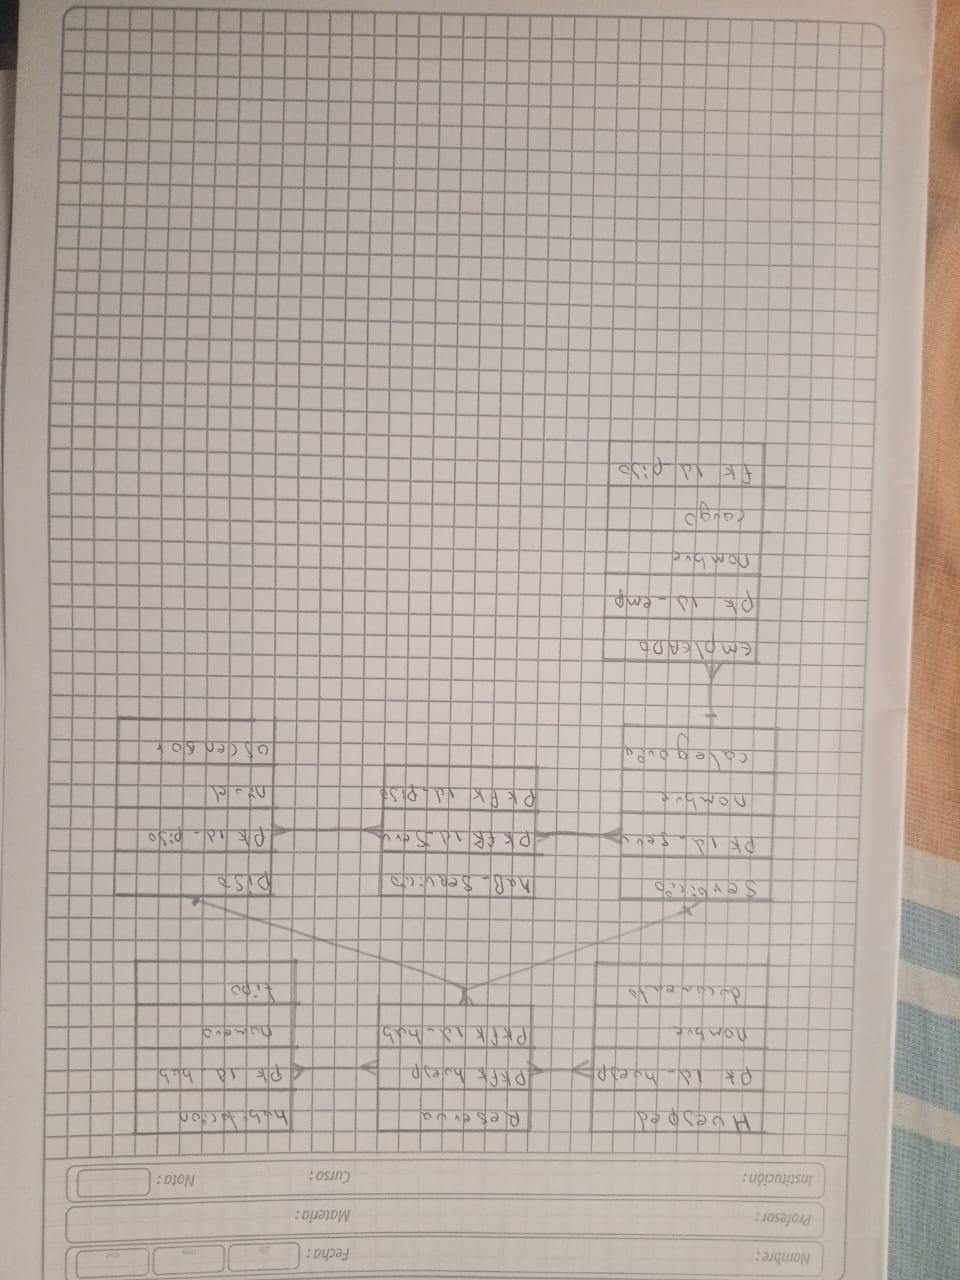 Nombre:
Fecha:
Profesor:
Materia:
Institución:
Curso:
Nota:
Huesped
pk id-huesp
nombre
documento
Reserva
pkfk huesp
pkfk id-hab
habitacion
pk id hab
numero
tipo
Servicio
pk id-serv
nombre
categoria
hab-servicio
pk fk id serv
pk fk id-piso
piso
pk id-piso
nivel
ascensor
empleado
pk id-emp
nombre
cargo
fk id-piso